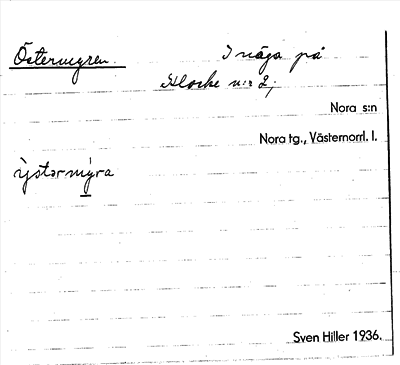 Östermyren.
I näga på
Klocke n:r 2,
Nora s:n
Nora tg., Västernorrl. l.
ỳstərmỳra
Sven Hiller 1936.